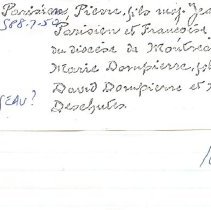 Parisien Pierre, fils maj. Je
588-7-50
Parisien et Françoise
du diocèse de Montréa
Marie Dompierre, fil
EAU?
David Dompierre et
Deschutes